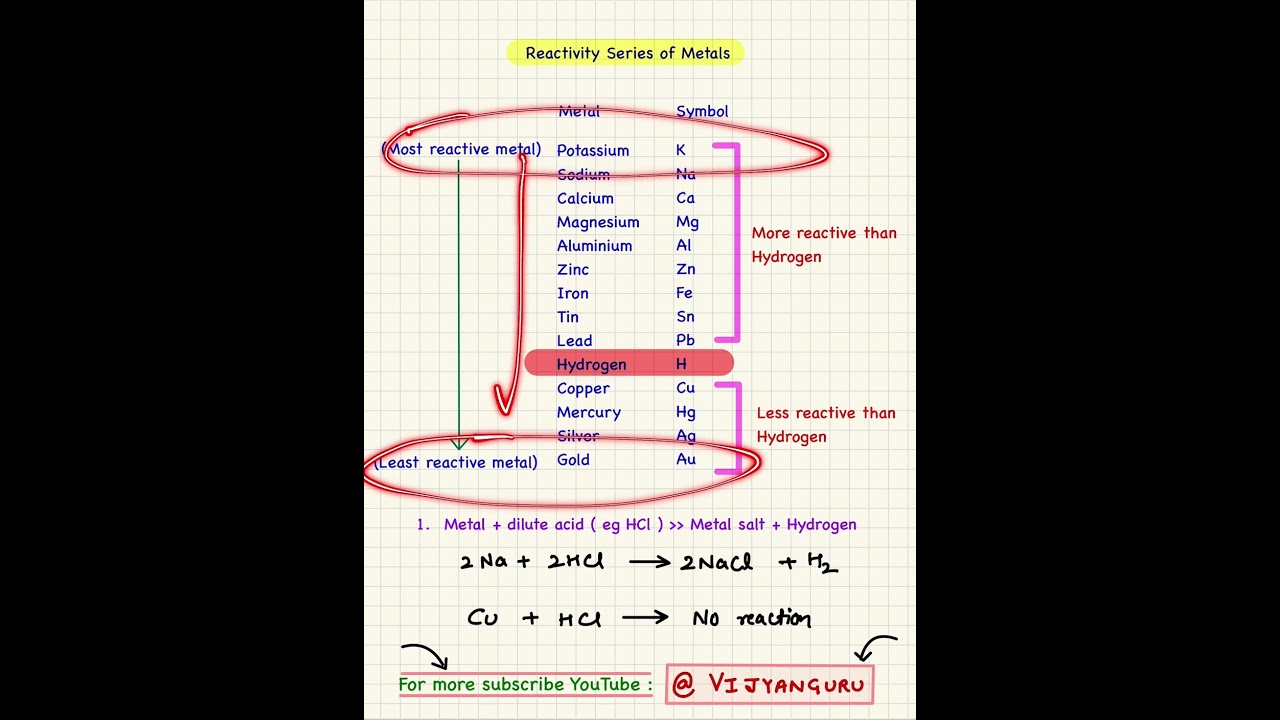 Reactivity Series of Metals
Metal Symbol
(Most reactive metal) Potassium K
Sodium Na
Calcium Ca
Magnesium Mg
More reactive than
Aluminium Al
Hydrogen
Zinc Zn
Iron Fe
Tin Sn
Lead Pb
Hydrogen H
Copper Cu
Mercury Hg
Less reactive than
Silver Ag
Hydrogen
(Least reactive metal) Gold Au
1. Metal + dilute acid ( eg HCl ) >> Metal salt + Hydrogen
2Na + 2HCl → 2NaCl + H₂
Cu + HCl → No reaction
For more subscribe YouTube : @ VIJYANGURU